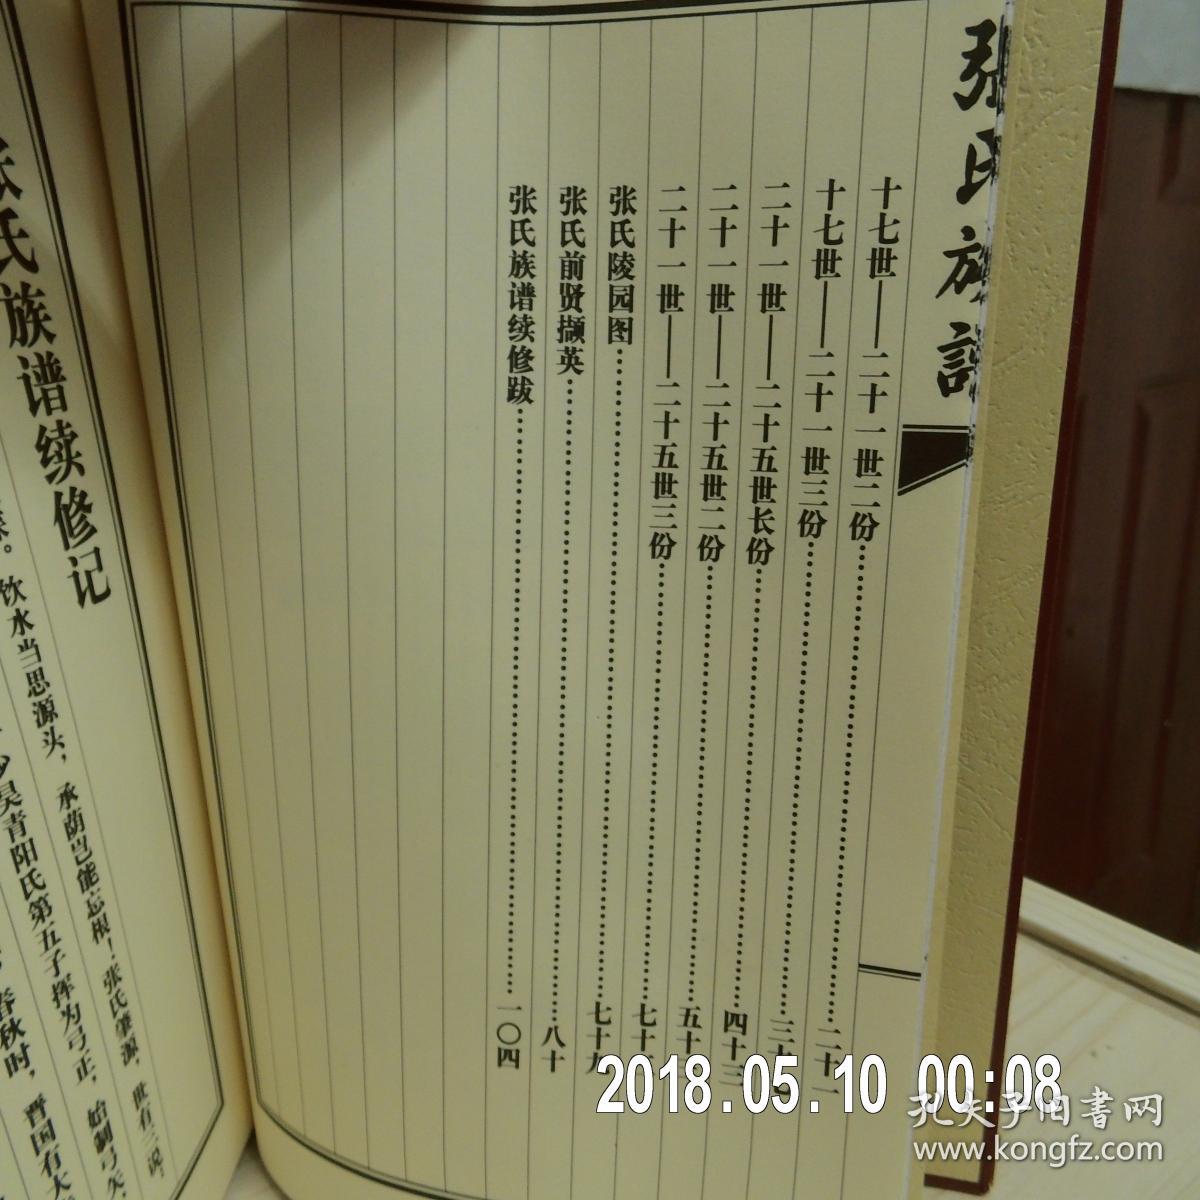 张氏族谱
十七世——二十一世二份……二十
十七世——二十一世三份……三十
二十一世——二十五世长份……四十三
二十一世——二十五世二份……五十
二十一世——二十五世三份……七十
张氏陵园图……七十九
张氏前贤撷英……八十
张氏族谱续修跋……一〇四
氏族谱续修记
饮水当思源头，承荫岂能忘根！张氏肇源，世有三说，
昊青阳氏第五子挥为弓正，始制弓矢，
春秋时，晋国有大
2018.05.10 00:08
孔夫子旧书网
www.kongfz.com